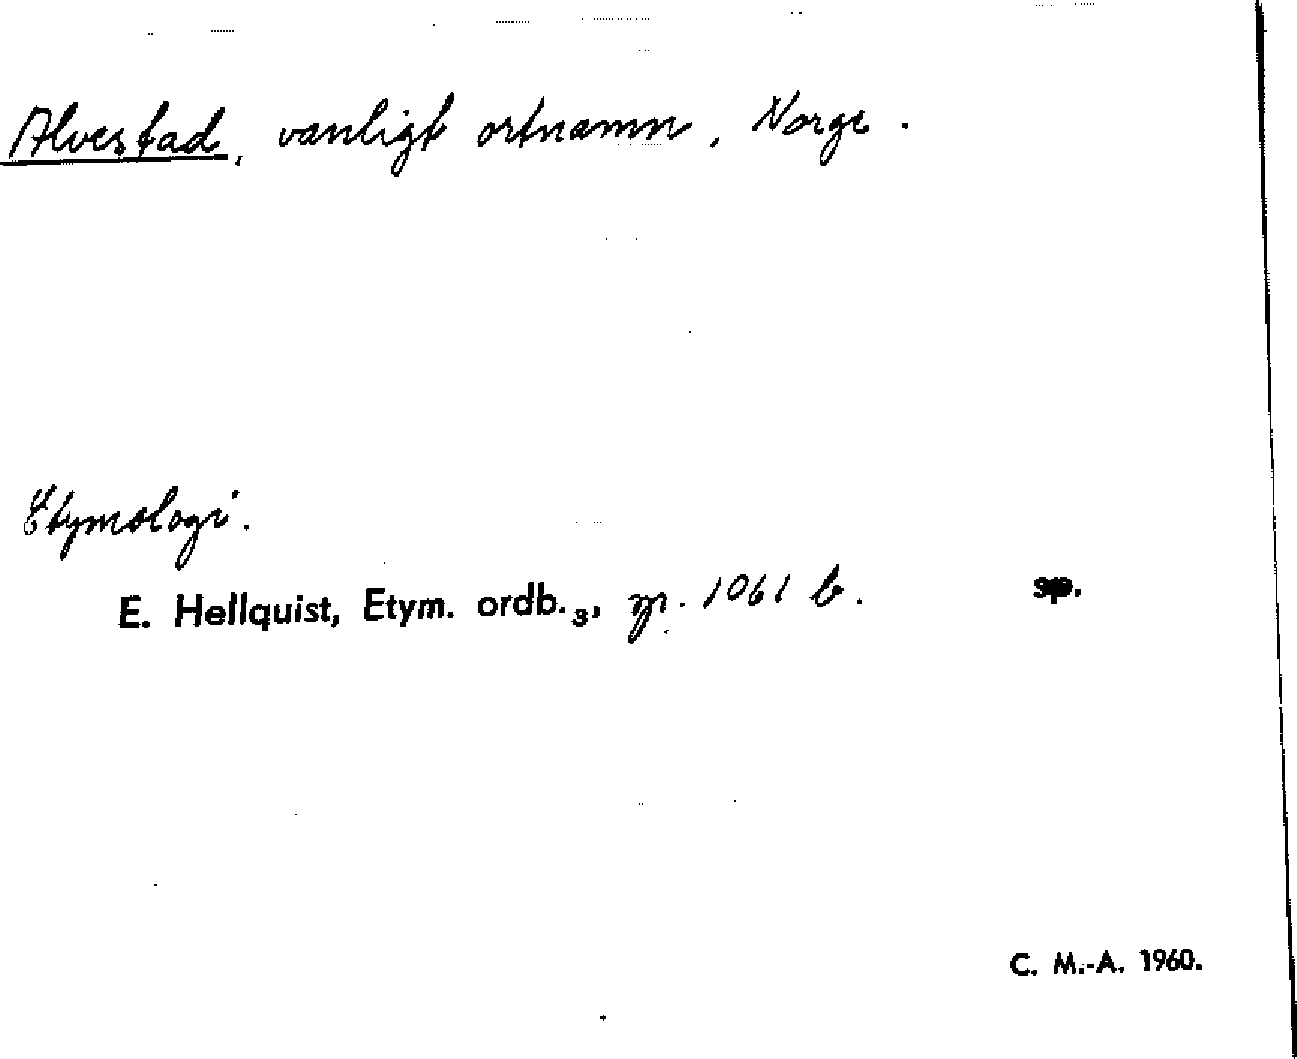 Alvestad, vanligt ortnamn, Norge.
Etymologi.
E. Hellquist, Etym. ordb.₃, p. 1061 b. sp.
C. M.-A. 1960.